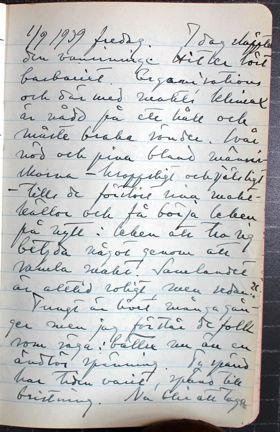 1/9 1939 fredag. I dag släppte
den vansinnige Hitler löst
barbariet. Organisations
och därmed makts klimax
är nådd på ett håll och
måste braka sönder. Svår
nöd och pina bland männi
skorna – kroppsligt och själsligt
– tills de förstört sina makt-
källor och få börja leken
på nytt: leken att tro sig
betyda något genom att
samla makt. Samlandet
är alltid roligt men sedan?
Tungt är livet många gån
ger men jag förstår de folk
som säga: hellre nu än en
ändlös spänning. Ty spänd
har tiden varit, spänd till
bristning. Nu